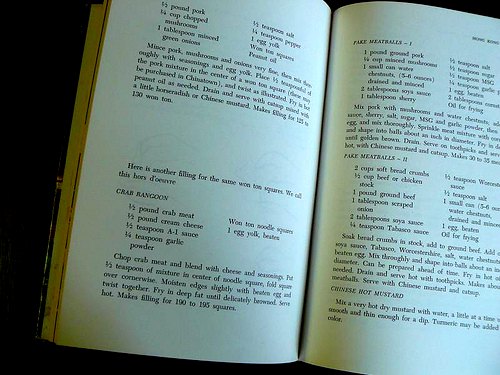 ½ pound pork
¼ cup chopped
mushrooms
1 tablespoon minced
green onions
½ teaspoon salt
¼ teaspoon pepper
1 egg yolk
Won ton squares
Oil for frying
Mince pork, mushrooms and onions very fine, then mix thor-
oughly with seasonings and egg yolk. Place ½ teaspoonful of
the pork mixture in the center of a won ton square (these may
be purchased in Chinatown), and twist as illustrated. Fry in hot
peanut oil as needed. Drain and serve with catsup mixed with
a little horseradish or Chinese mustard. Makes filling for 125 to
130 won ton.
Here is another filling for the same won ton squares. We call
this hors d'oeuvre
CRAB RANGOON
½ pound crab meat
½ pound cream cheese
½ teaspoon A-1 sauce
¼ teaspoon garlic
powder
Won ton noodle squares
1 egg yolk, beaten
Chop crab meat and blend with cheese and seasonings. Put
½ teaspoon of mixture in center of noodle square, fold square
over cornerwise. Moisten edges slightly with beaten egg and
twist together. Fry in deep fat until delicately browned. Serve
hot. Makes filling for 190 to 195 squares.
HONG KONG
FAKE MEATBALLS – I
1 pound ground pork
¼ cup minced mushrooms
1 small can water
chestnuts, (5-6 ounces)
drained and minced
2 tablespoons soya sauce
1 tablespoon sherry
½ teaspoon
½ teaspoon salt
½ teaspoon MSG
¼ teaspoon garlic
1 egg, beaten
2 tablespoons
Oil for frying
Mix pork with mushrooms and water chestnuts, add
sauce, sherry, salt, sugar, MSG and garlic powder, then
egg, and mix thoroughly. Sprinkle meat mixture with
and shape into balls about an inch in diameter. Fry in
until golden brown. Drain. Serve on toothpicks and serve
hot, with Chinese mustard and catsup. Makes 30 to 35
FAKE MEATBALLS – II
2 cups soft bread crumbs
½ cup beef or chicken
stock
1 pound ground beef
1 tablespoon scraped
onion
2 tablespoons soya sauce
¼ teaspoon Tabasco sauce
½ teaspoon
sauce
½ teaspoon salt
1 small can (5-6
water chestnuts,
drained and minced
1 egg, beaten
Oil for frying
Soak bread crumbs in stock, add to ground beef. Add
soya sauce, Tabasco, Worcestershire, salt, water chestnuts
beaten egg. Mix thoroughly and shape into balls about an inch
diameter. Can be prepared ahead of time. Fry in hot oil
needed. Drain and serve hot with toothpicks. Makes about
meatballs. Serve with Chinese mustard and catsup.
CHINESE HOT MUSTARD
Mix a very hot dry mustard with water, a little at a time
smooth and thin enough for a dip. Turmeric may be added
color.